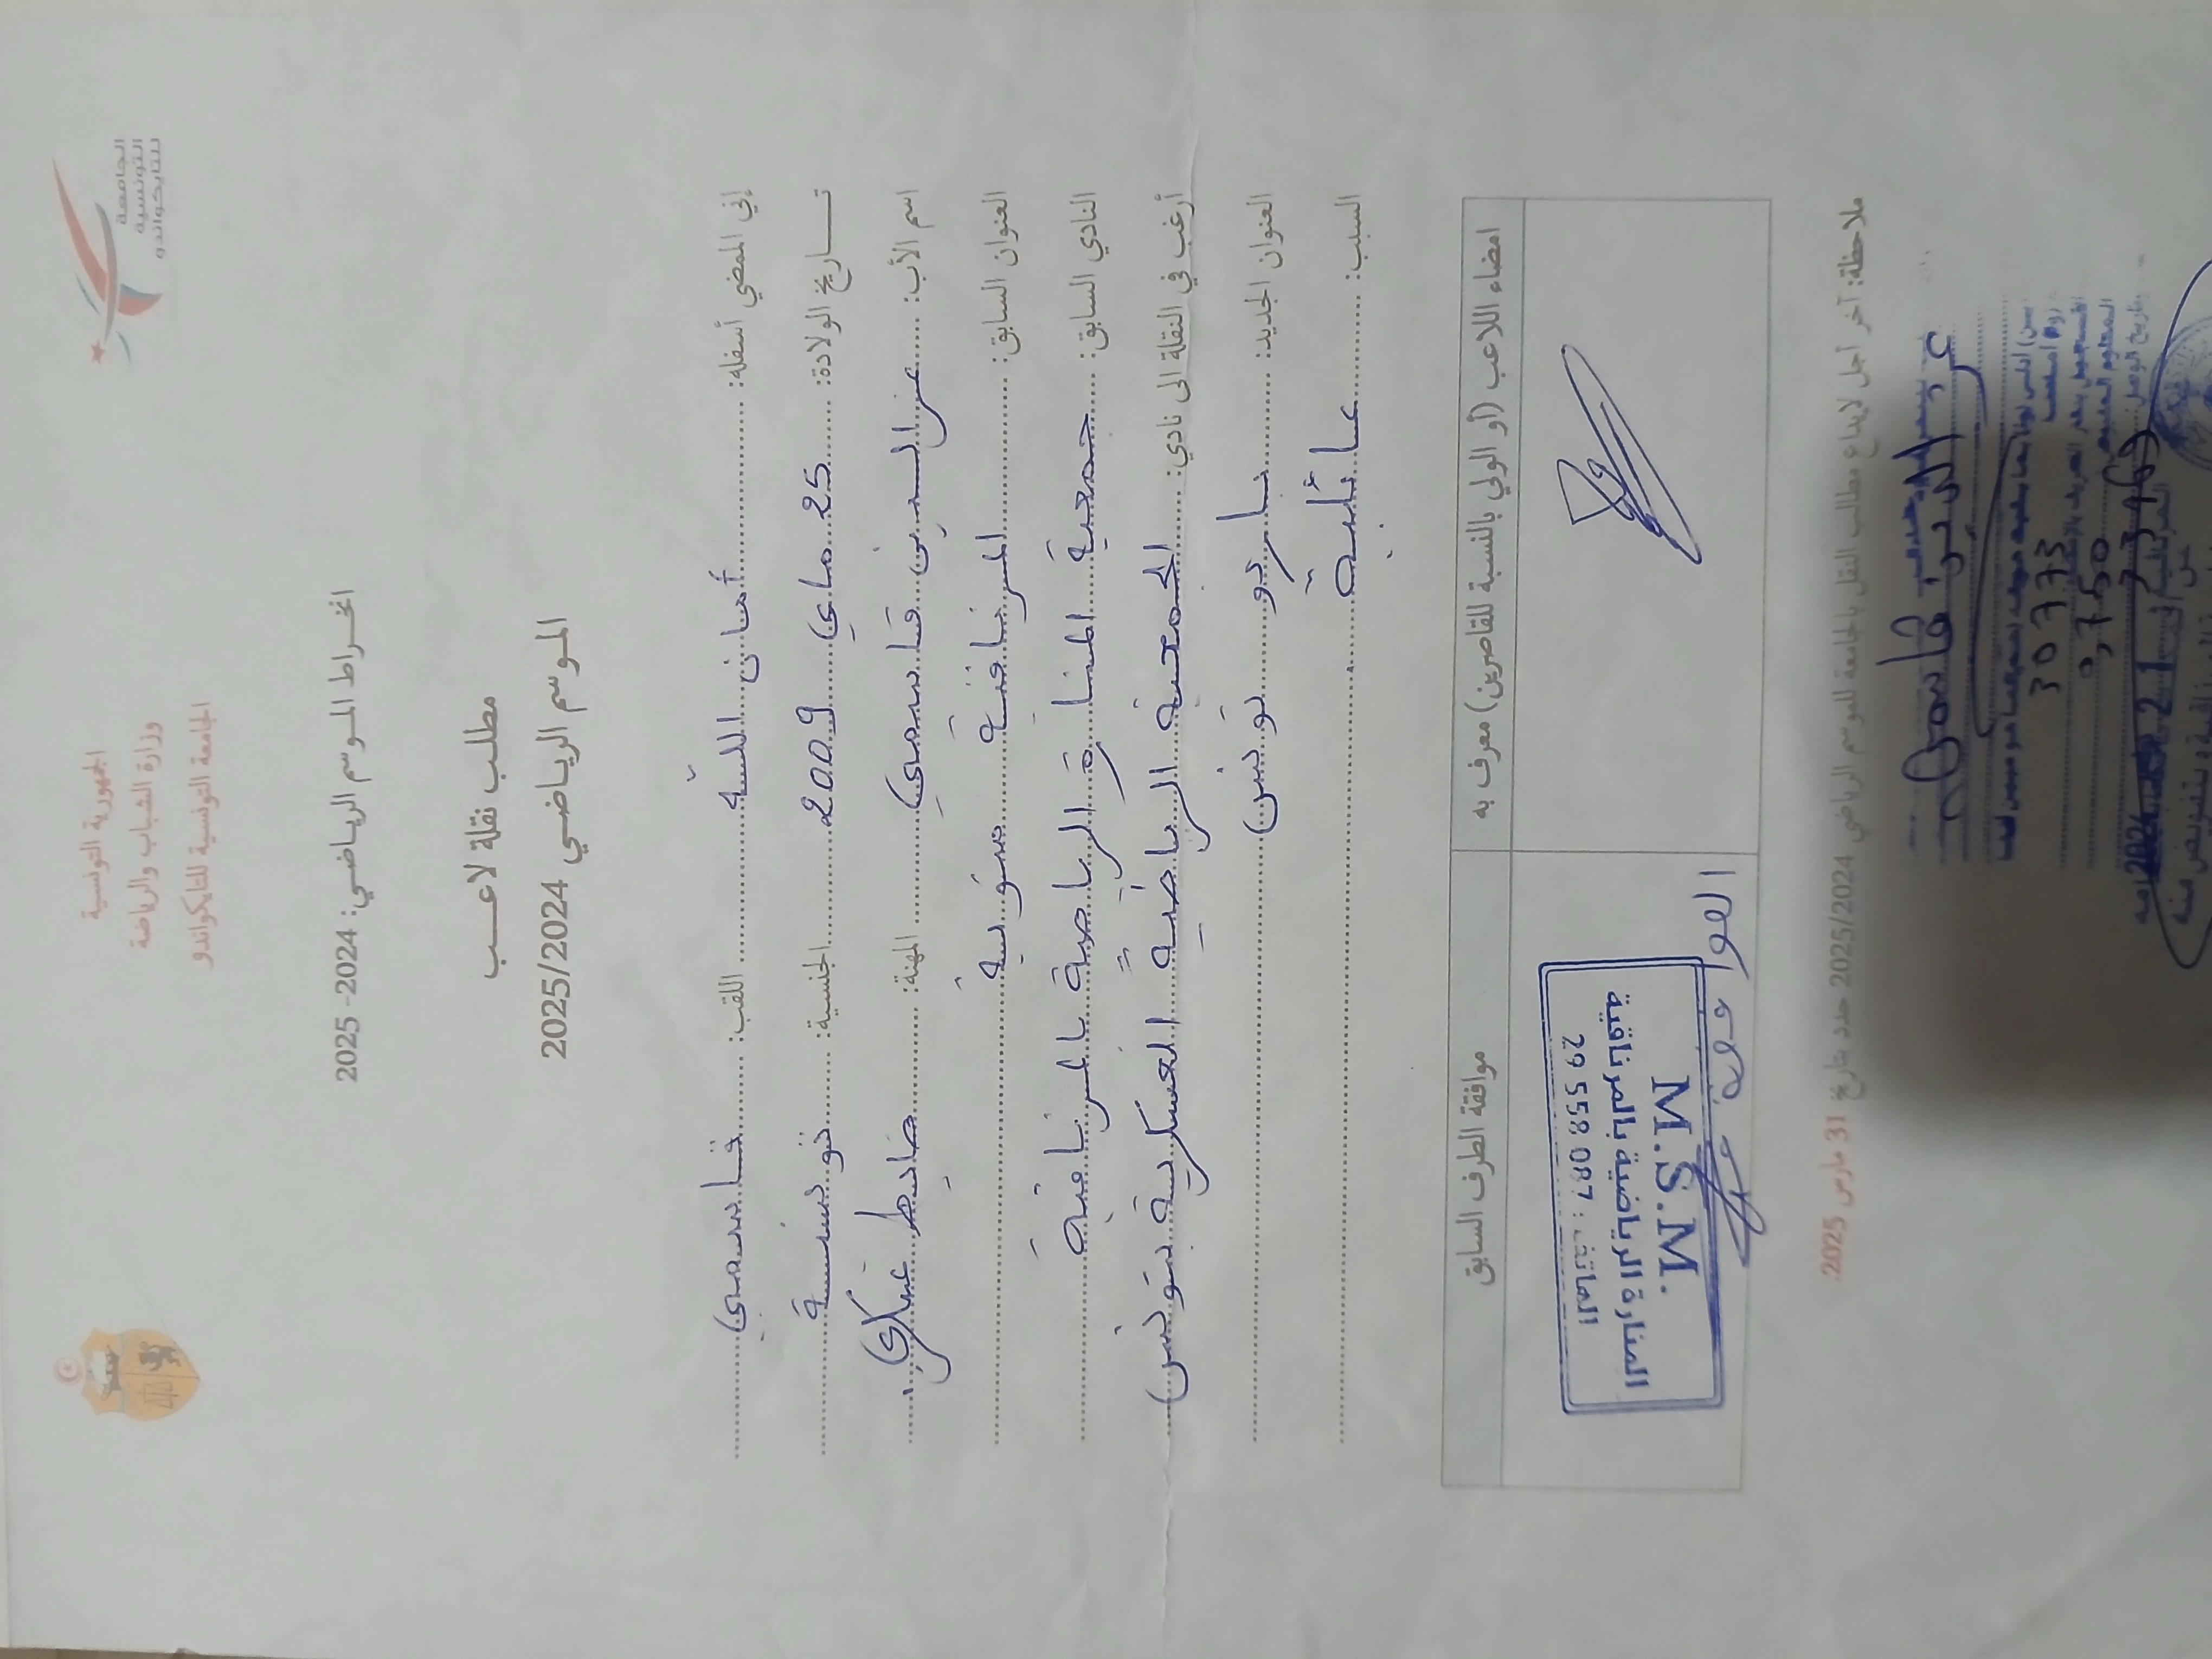 الجامعة
التونسية
للتايكواندو
الجمهورية التونسية
وزارة الشباب والرياضة
الجامعة التونسية للتايكواندو
انخراط الموسم الرياضي: 2024-2025
مطلب نقلة لاعب
الموسم الرياضي 2025/2024
إني الممضي أسفله: أمان الله اللقب: قاسمي
تاريخ الولادة: 25 ماي 2009 الجنسية: تونسية
اسم الأب: عز الدين قاسمي المهنة: ضابط عسكري
العنوان السابق: المرناقية منوبة
النادي السابق: جمعية المنارة الرياضية بالمرناقية
أرغب في النقلة الى نادي: الجمعية الرياضية العسكرية بتونس
العنوان الجديد: باردو تونس
السبب: عائلية
امضاء اللاعب (أو الولي بالنسبة للقاصرين) معرف به موافقة الطرف السابق
الموافقة
M.S.M.
المنارة الرياضية بالمرناقية
الهاتف: 29 558 087
ملاحظة: آخر أجل لإيداع مطالب النقل بالجامعة للموسم الرياضي 2025/2024 حدد بتاريخ 31 مارس 2025.
عز الدين قاسمي
30773
0,750